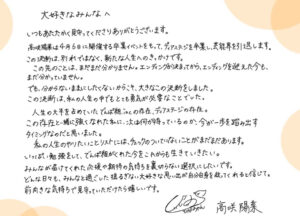 大好きなみんなへ
いつもあたたかく見守ってくださりありがとうございます。
高咲陽菜は今月5日に開催する卒業イベントをもって、ディアステージを卒業し、芸能界を引退します。
この決断は、引退ではなく、新たな人生へのきっかけです。
この先のことは、まだまだ分かりません。エンディングが決まってから、エンディングを迎えた今も、
まだ分かっていません。
でも、分からないままにしたくないからこそ、大きなこの決断をしました。
この決断は、私の人生の中でもとても勇気が必要なことでした。
人生の大半を占めていたでんぱ組.incの存在、ディアステージの存在。
この存在と一緒に強くなれた私に、次は何が待っているのか、今が一歩を踏み出す
タイミングなのだと思いました。
私の人生のやりたいことリストには、チェックのついていないことがまだまだあります。
いっぱい勉強をして、でんぱ組がくれた今をこれからも生きていきたい。
みんなが届けてくれた応援や期待の気持ちを裏切らない選択にしたいです。
どんな日々も、みんなと過ごした揺るぎない大好きな思い出が自分自身を救ってくれると信じて。
前向きな気持ちで見守っていただけたら嬉しいです。
高咲陽菜